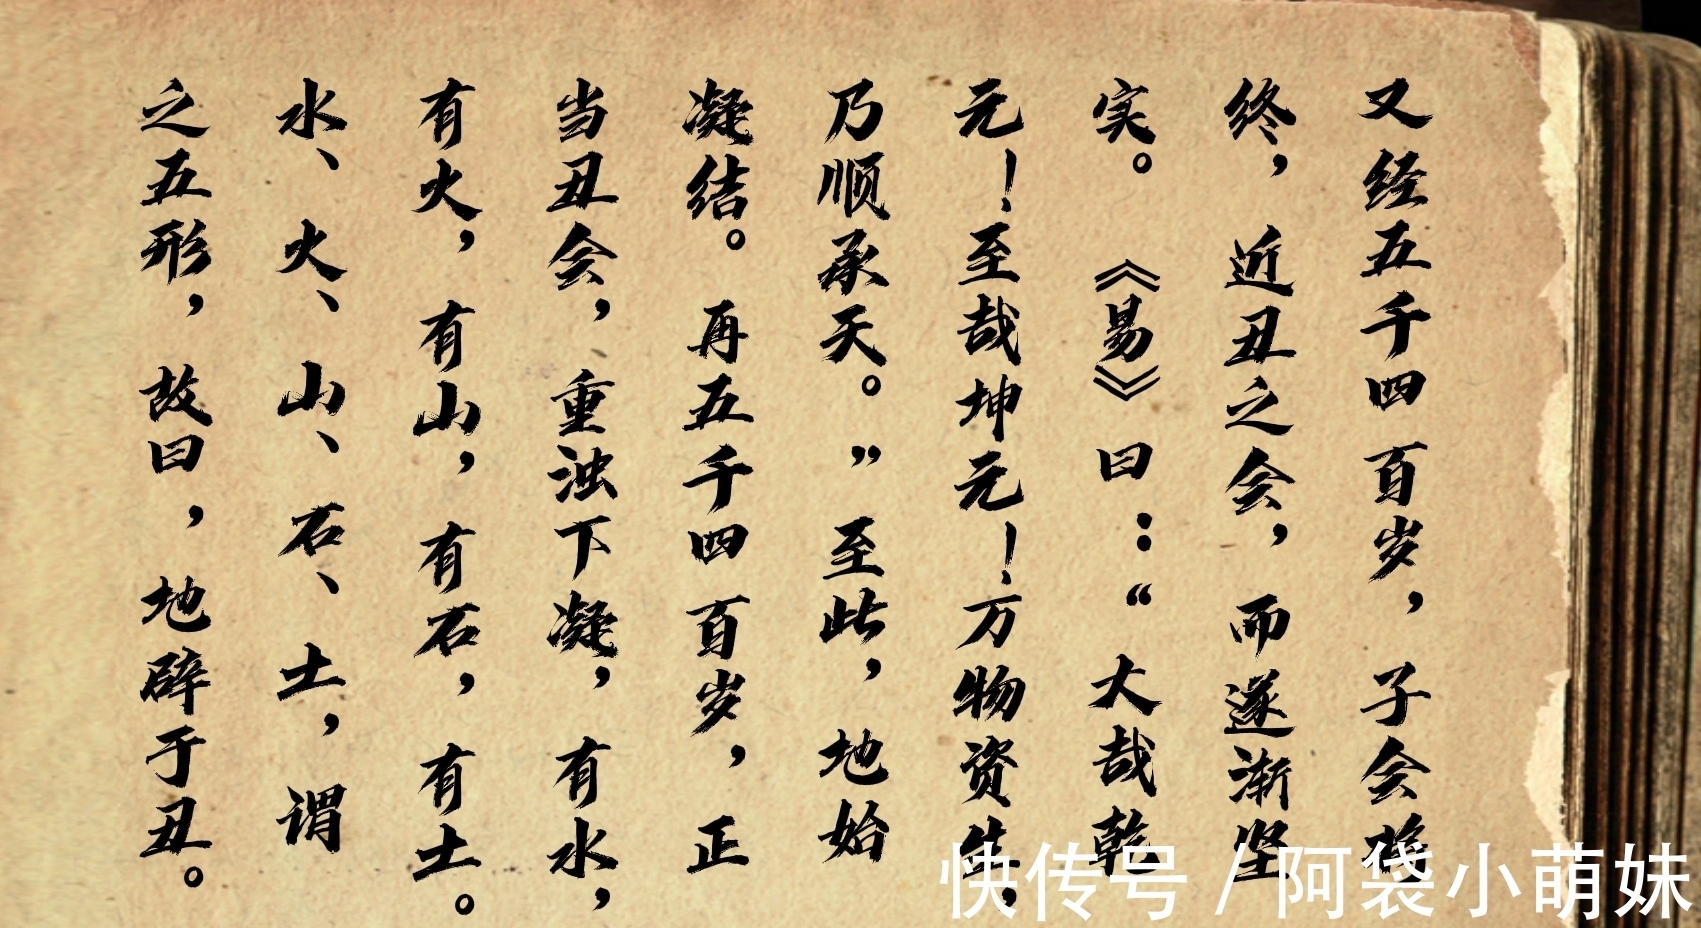 又经五千四百岁，子会将
终，近丑之会，而遂渐坚
实。《易》曰：“大哉乾
元！至哉坤元！万物资生，
乃顺承天。”至此，地始
凝结。再五千四百岁，正
当丑会，重浊下凝，有水，
有火，有山，有石，有土。
水、火、山、石、土，谓
之五形，故曰，地辟于丑。
快传号 / 阿袋小萌妹